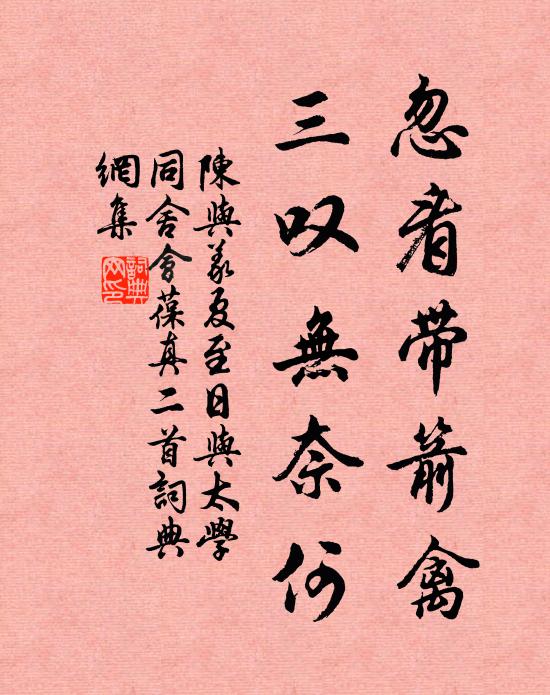 忽看带箭禽
三叹無奈何
陳與義夏至日與太學
同舍會葆真二首詞典
網集
詞典網印